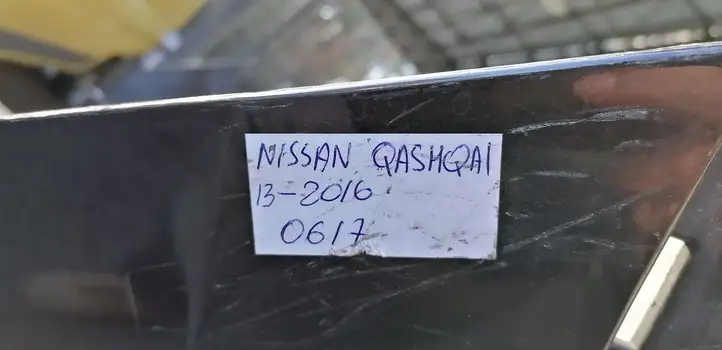 NISSAN QASHQAI
13-2016
0617